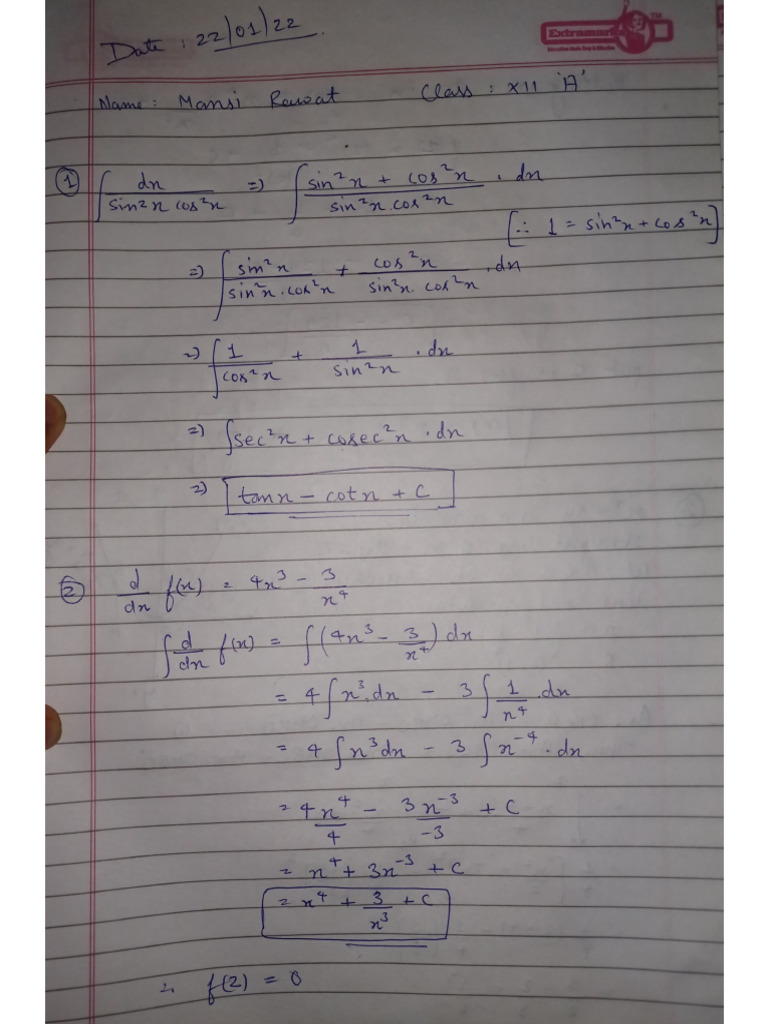 Date : 22/01/22.
Extramarks
TM
Name : Mansi Rawat Class : XII 'A'
① ∫ dx / sin²x cos²x => ∫ sin²x + cos²x / sin²x.cos²x . dx
[∵ 1 = sin²x + cos²x]
=> ∫ sin²x / sin²x.cos²x + cos²x / sin²x.cos²x .dx
=> ∫ 1 / cos²x + 1 / sin²x .dx
=> ∫ sec²x + cosec²x .dx
=> tanx – cotx + C
② d/dx f(x) = 4x³ – 3/x⁴
∫ d/dx f(x) = ∫ (4x³ – 3/x⁴) dx
= 4 ∫ x³.dx – 3 ∫ 1/x⁴ .dx
= 4 ∫ x³dx – 3 ∫ x⁻⁴ . dx
= 4x⁴/4 – 3x⁻³/-3 + C
= x⁴ + 3x⁻³ + C
= x⁴ + 3/x³ + C
∴ f(2) = 0